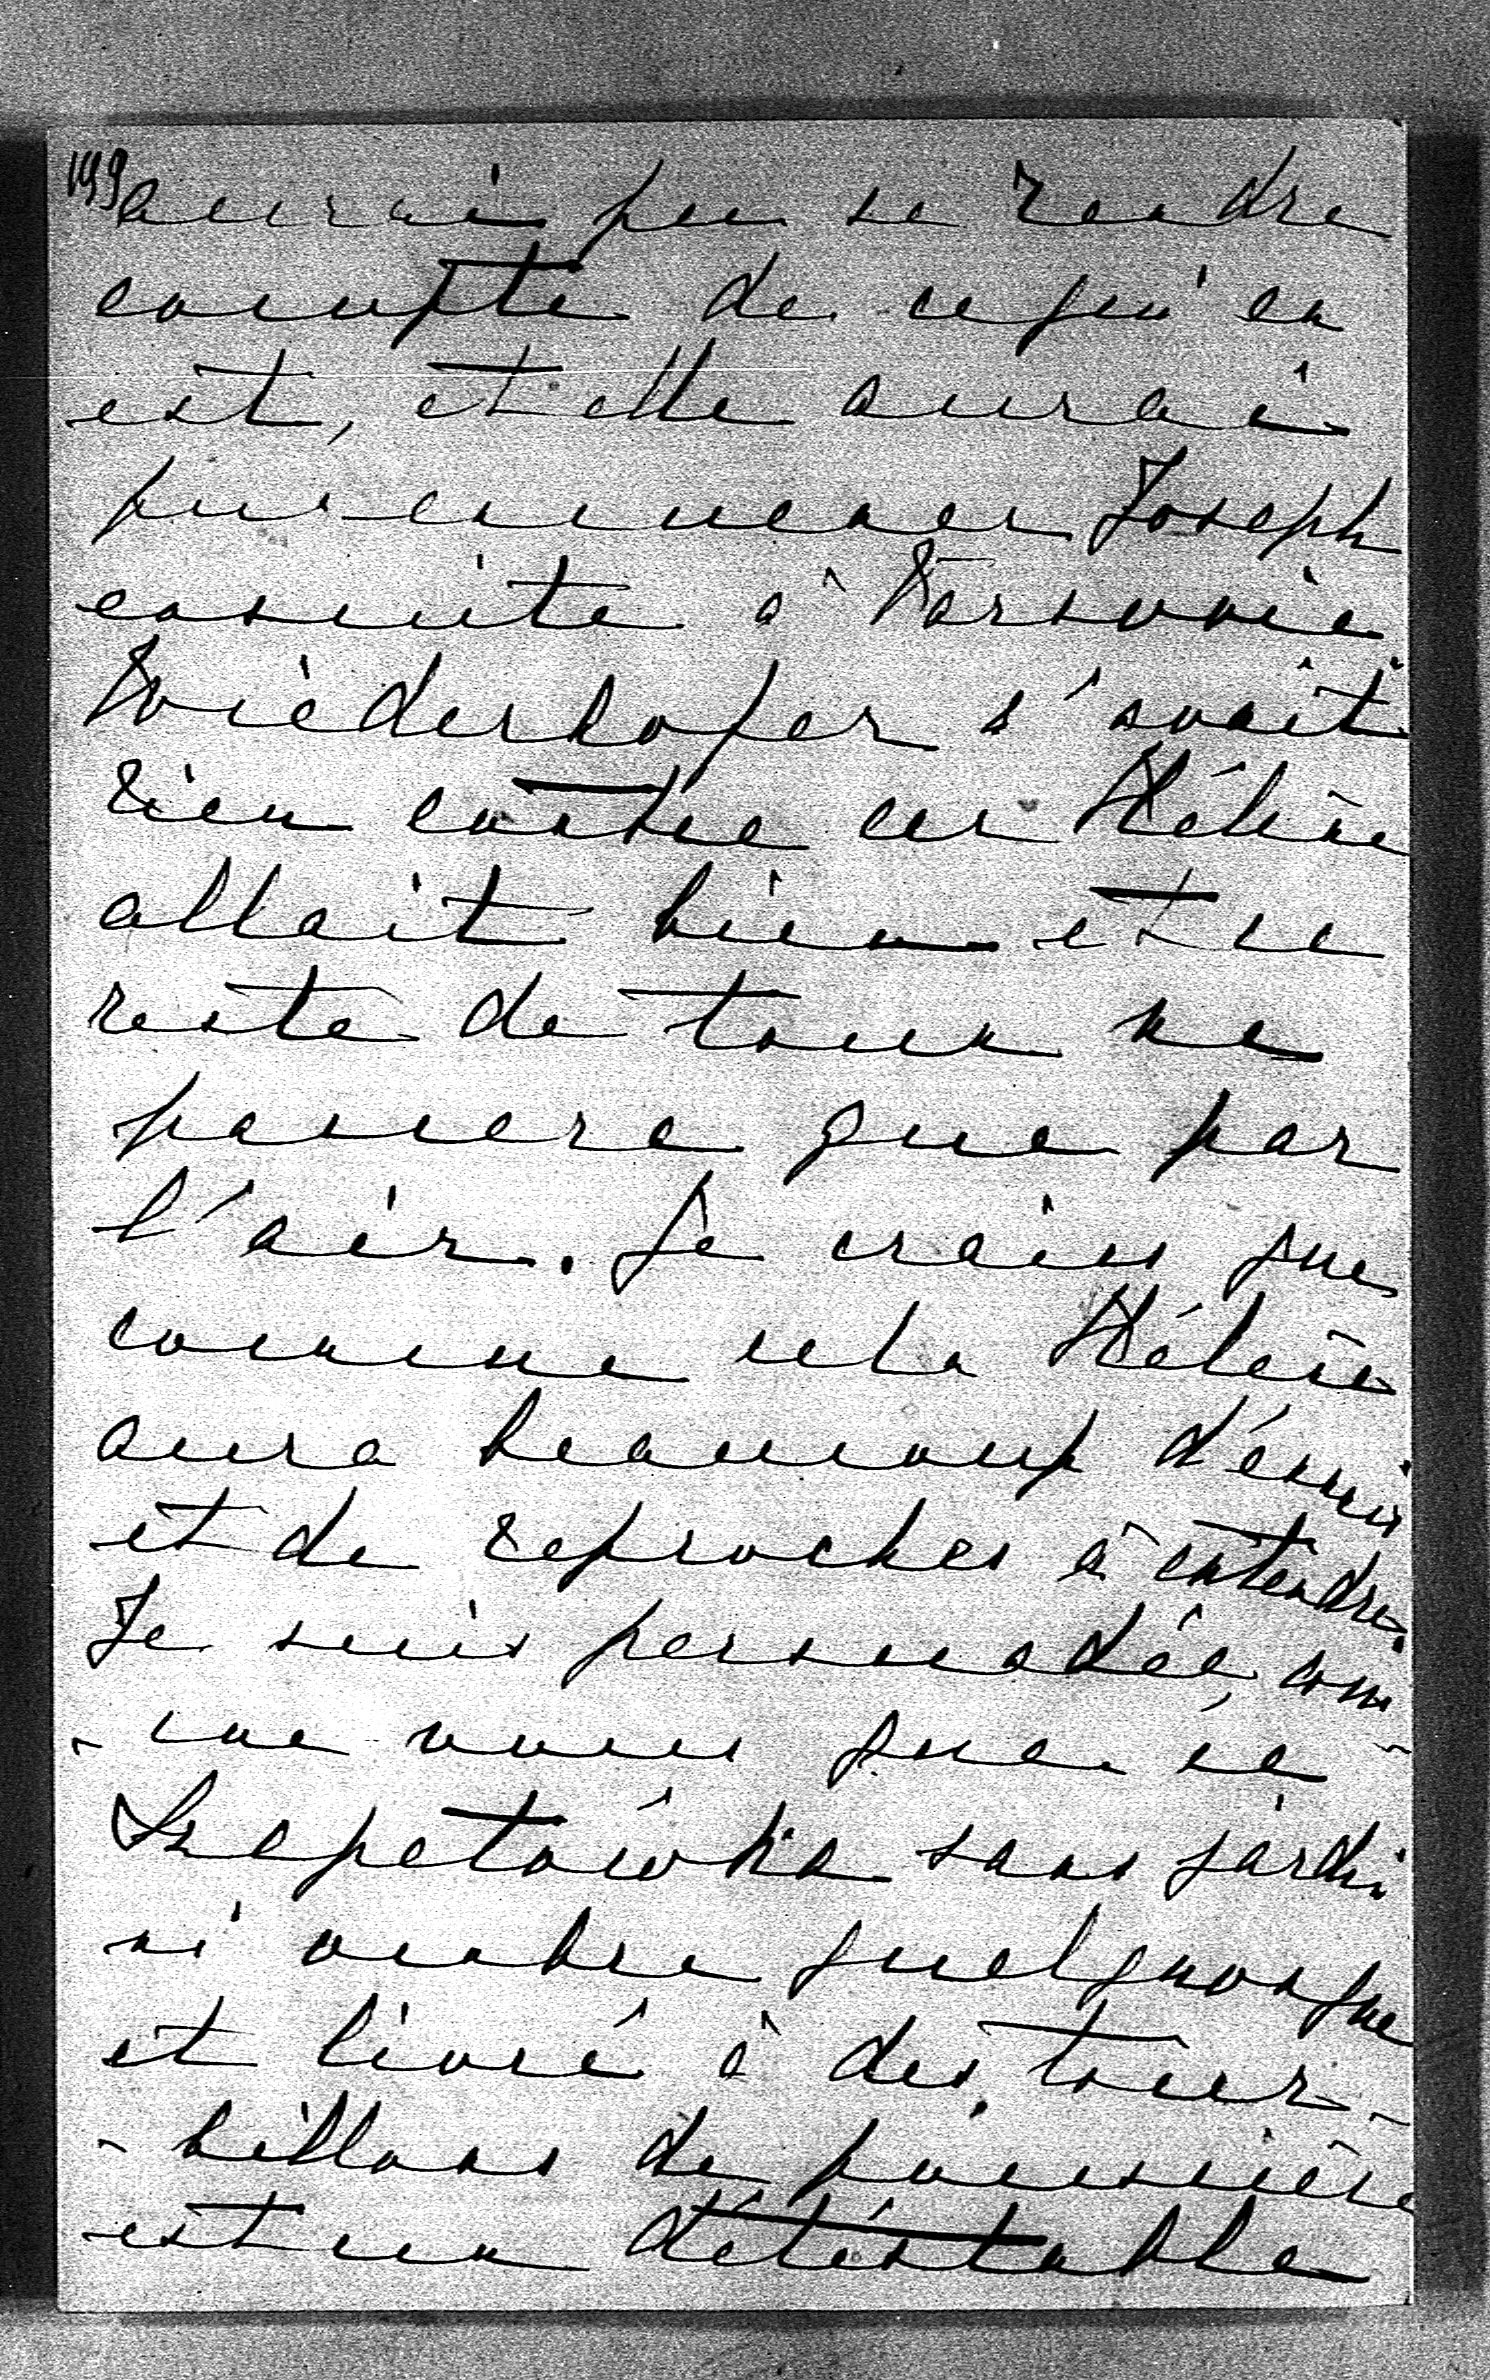 199 aurai pu se rendre
compte de ce qu'en
est, et elle aurai
pu emmener Joseph
ensuite à Varsovie.
Wiederhofer n'avait
rien contre car Hélène
allait bien et ce
reste de toux ne
passera que par
l'air. Je crains que
comme cela Hélène
aura beaucoup d'ennuis
et de reproches à entendre.
Je suis persuadée, com-
-me vous que ce
Szepetówka sans jardin
ni ombre quelquonque
et livré à des tour-
-billons de poussière
est un détéstable